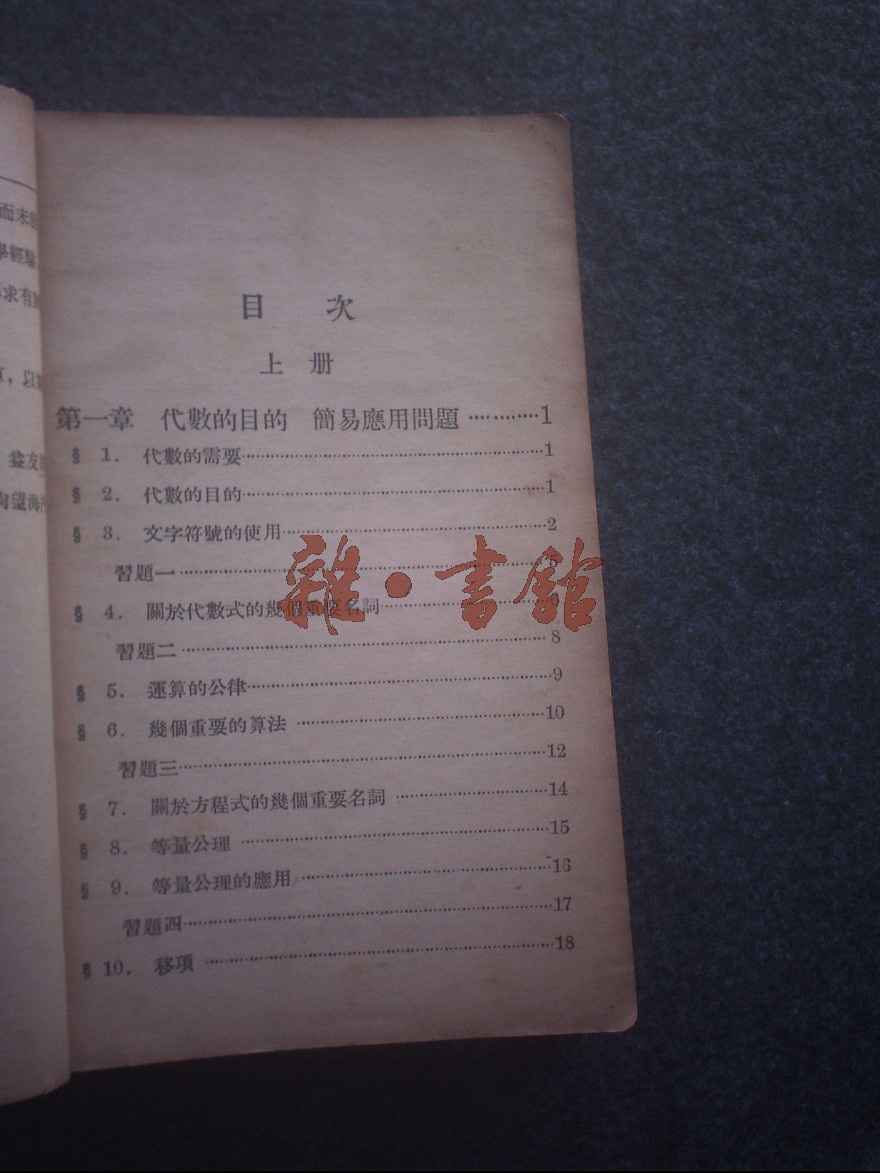 而未
學經驗
求有
，以
益友
向望海
目 次
上 册
第一章 代數的目的 簡易應用問題…………1
§ 1. 代數的需要……………1
§ 2. 代數的目的……………1
§ 3. 文字符號的使用……………2
習題一……………
§ 4. 關於代數式的幾個重要名詞……………
習題二……………8
§ 5. 運算的公律……………9
§ 6. 幾個重要的算法……………10
習題三……………12
§ 7. 關於方程式的幾個重要名詞……………14
§ 8. 等量公理……………15
§ 9. 等量公理的應用……………16
習題四……………17
§ 10. 移項……………18
雜·書館